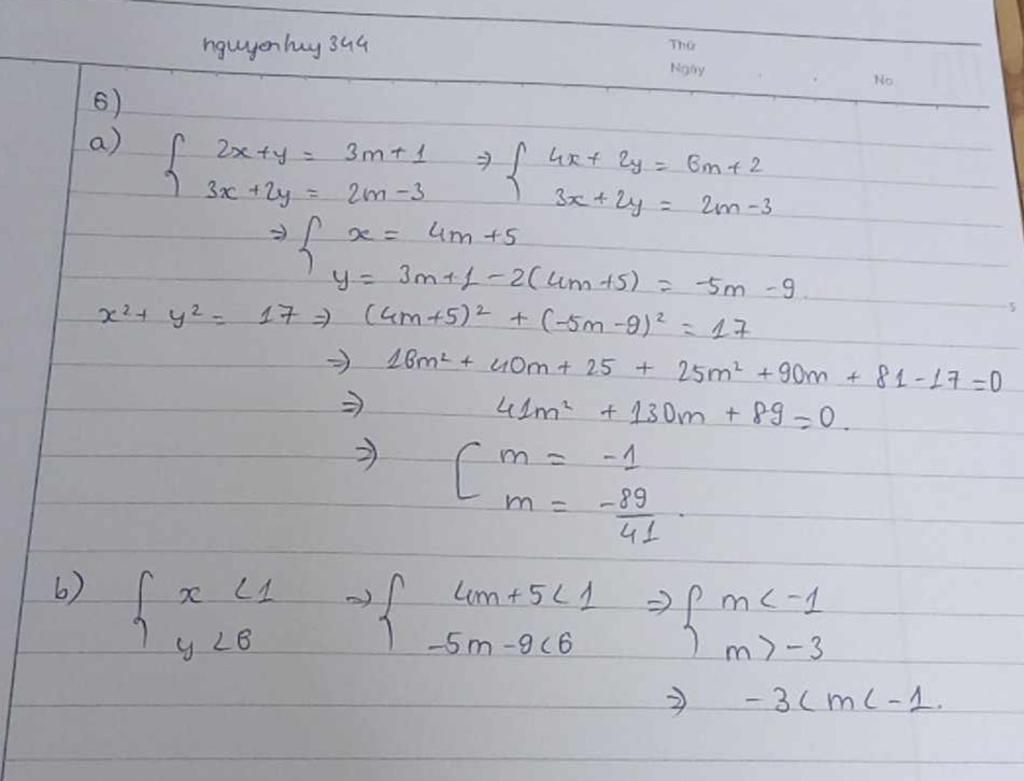 nguyenhuy344
Thứ
Ngày
No
6)
a) { 2x+y = 3m+1 ⇒ { 4x+ 2y = 6m+2
3x+2y = 2m-3 3x+2y = 2m-3
⇒ { x = 4m+5
y = 3m+1-2(4m+5) = -5m-9
x²+ y² = 17 ⇒ (4m+5)² + (-5m-9)² = 17
⇒ 16m² + 40m + 25 + 25m² + 90m + 81-17=0
⇒ 41m² + 130m + 89=0.
⇒ [ m = -1
m = -89/41.
b) { x <1 ⇒ { 4m+5<1 ⇒ { m<-1
y <6 -5m-9<6 m>-3
⇒ -3<m<-1.